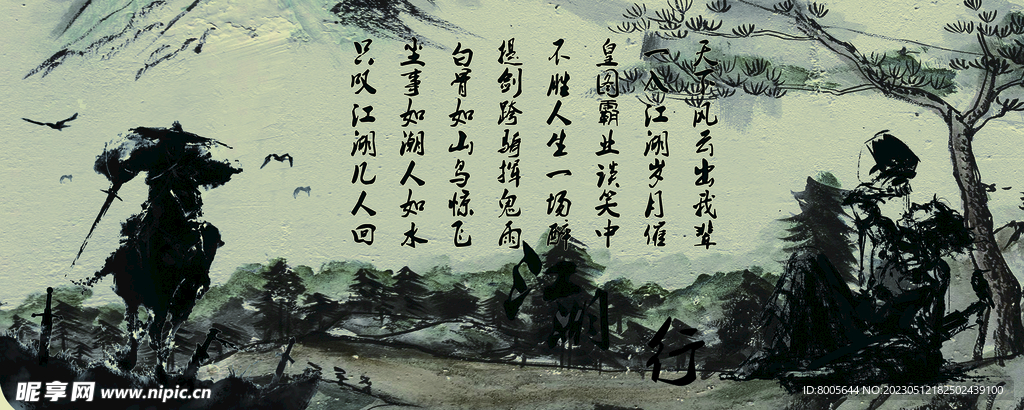 天下风云出我辈
一入江湖岁月催
皇图霸业谈笑中
不胜人生一场醉
提剑跨骑挥鬼雨
白骨如山鸟惊飞
尘事如潮人如水
只叹江湖几人回
江湖行
昵享网 www.nipic.cn
ID:8005644 NO:20230512182502439100